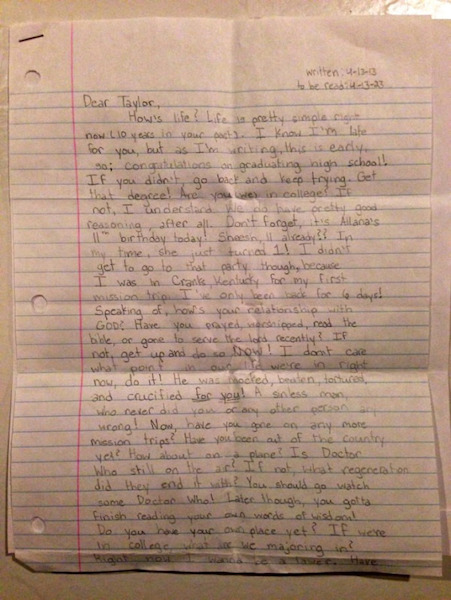 written: 4-13-13
to be read: 4-13-23
Dear Taylor,
How's life? Life is pretty simple right
now (10 years in your past). I know I'm late
for you, but as I'm writing, this is early,
so; congratulations on graduating high school!
If you didn't, go back and keep trying. Get
that degree! Are you in college? If
not, I understand. We do have pretty good
reasoning, after all. Don't forget, it's Allana's
11th birthday today! Sheesh, 11 already?! In
my time, she just turned 1! I didn't
get to go to that party though, because
I was in Cranks Kentucky for my first
mission trip. I've only been back for 6 days!
Speaking of, how's your relationship with
GOD? Have you prayed, worshipped, read the
bible, or gone to serve the lord recently? If
not, get up and do so NOW! I don't care
what point in our life we're in right
now, do it! He was mocked, beaten, tortured,
and crucified for you! A sinless man,
who never did you or any other person any
wrong! Now, have you gone on any more
mission trips? Have you been out of the country
yet? How about on a plane? Is Doctor
Who still on the air? If not, what regeneration
did they end it with? You should go watch
some Doctor Who! Later though, you gotta
finish reading your own words of wisdom!
Do you have your own place yet? If we're
in college what are we majoring in?
Right now I wanna be a lawer. Have